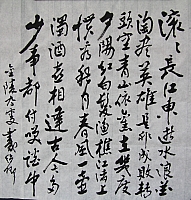 滚〻長江東逝水浪花
淘尽英雄是非成敗转
頭空青山依舊在幾度
夕陽红白髮渔樵江渚上
慣看秋月春風一壶
濁酒喜相逢古今多
少事都付笑談中
金陵